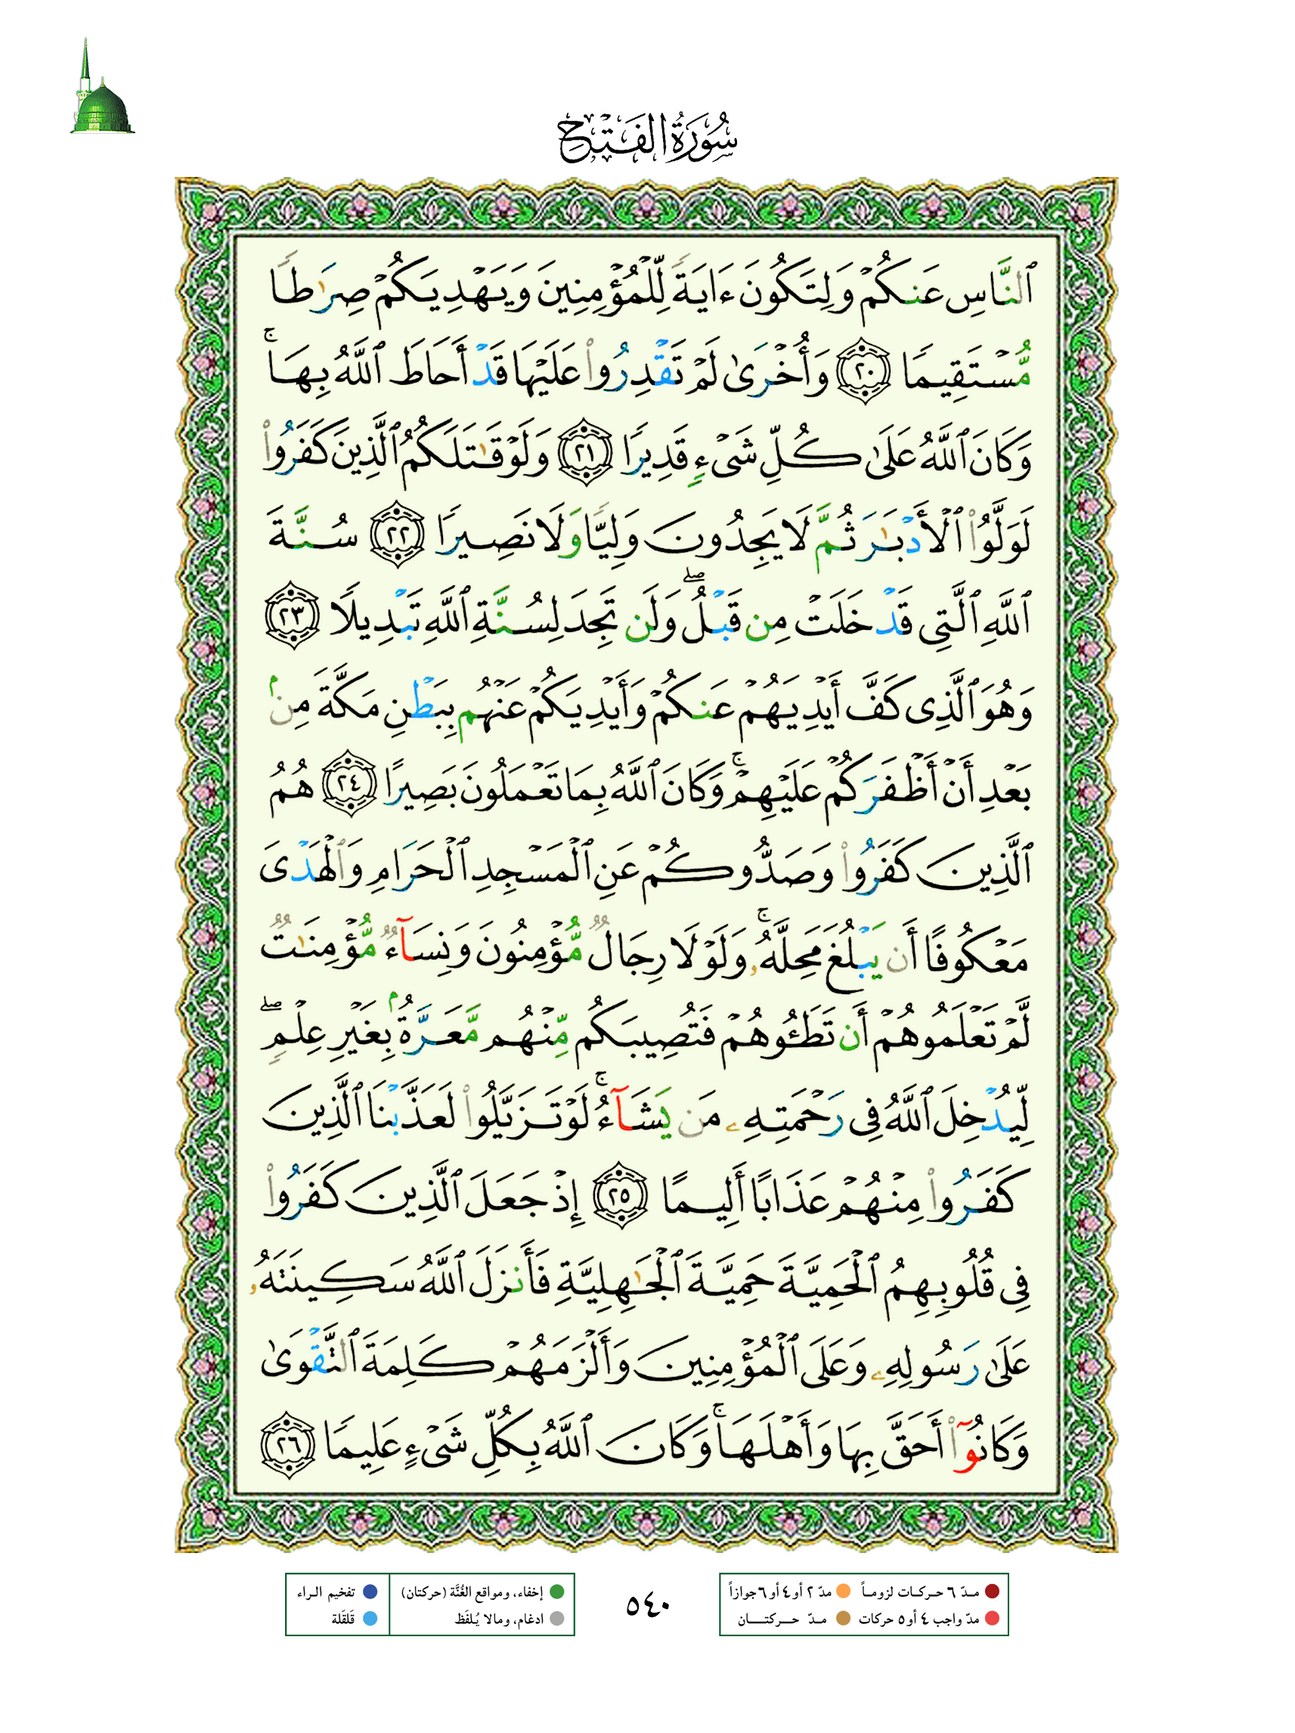 سُورَةُ الفَتْحِ
ٱلنَّاسِ عَنكُمْ وَلِتَكُونَ ءَايَةً لِّلْمُؤْمِنِينَ وَيَهْدِيَكُمْ صِرَٰطًا
مُّسْتَقِيمًا ٢٠ وَأُخْرَىٰ لَمْ تَقْدِرُوا۟ عَلَيْهَا قَدْ أَحَاطَ ٱللَّهُ بِهَا ۚ
وَكَانَ ٱللَّهُ عَلَىٰ كُلِّ شَىْءٍ قَدِيرًا ٢١ وَلَوْ قَٰتَلَكُمُ ٱلَّذِينَ كَفَرُوا۟
لَوَلَّوُا۟ ٱلْأَدْبَٰرَ ثُمَّ لَا يَجِدُونَ وَلِيًّا وَلَا نَصِيرًا ٢٢ سُنَّةَ
ٱللَّهِ ٱلَّتِى قَدْ خَلَتْ مِن قَبْلُ ۖ وَلَن تَجِدَ لِسُنَّةِ ٱللَّهِ تَبْدِيلًا ٢٣
وَهُوَ ٱلَّذِى كَفَّ أَيْدِيَهُمْ عَنكُمْ وَأَيْدِيَكُمْ عَنْهُم بِبَطْنِ مَكَّةَ مِنۢ
بَعْدِ أَنْ أَظْفَرَكُمْ عَلَيْهِمْ ۚ وَكَانَ ٱللَّهُ بِمَا تَعْمَلُونَ بَصِيرًا ٢٤ هُمُ
ٱلَّذِينَ كَفَرُوا۟ وَصَدُّوكُمْ عَنِ ٱلْمَسْجِدِ ٱلْحَرَامِ وَٱلْهَدْىَ
مَعْكُوفًا أَن يَبْلُغَ مَحِلَّهُۥ ۚ وَلَوْلَا رِجَالٌ مُّؤْمِنُونَ وَنِسَآءٌ مُّؤْمِنَٰتٌ
لَّمْ تَعْلَمُوهُمْ أَن تَطَـُٔوهُمْ فَتُصِيبَكُم مِّنْهُم مَّعَرَّةٌۢ بِغَيْرِ عِلْمٍ ۖ
لِّيُدْخِلَ ٱللَّهُ فِى رَحْمَتِهِۦ مَن يَشَآءُ ۚ لَوْ تَزَيَّلُوا۟ لَعَذَّبْنَا ٱلَّذِينَ
كَفَرُوا۟ مِنْهُمْ عَذَابًا أَلِيمًا ٢٥ إِذْ جَعَلَ ٱلَّذِينَ كَفَرُوا۟
فِى قُلُوبِهِمُ ٱلْحَمِيَّةَ حَمِيَّةَ ٱلْجَٰهِلِيَّةِ فَأَنزَلَ ٱللَّهُ سَكِينَتَهُۥ
عَلَىٰ رَسُولِهِۦ وَعَلَى ٱلْمُؤْمِنِينَ وَأَلْزَمَهُمْ كَلِمَةَ ٱلتَّقْوَىٰ
وَكَانُوٓا۟ أَحَقَّ بِهَا وَأَهْلَهَا ۚ وَكَانَ ٱللَّهُ بِكُلِّ شَىْءٍ عَلِيمًا ٢٦
مدّ ٦ حركات لزوماً مدّ ٢ أو ٤ أو ٦ جوازاً
مدّ واجب ٤ أو ٥ حركات مدّ حركتان
٥٤٠
إخفاء، ومواقع الغُنَّة (حركتان) تفخيم الراء
ادغام، ومالا يُلفَظ قَلقَلة